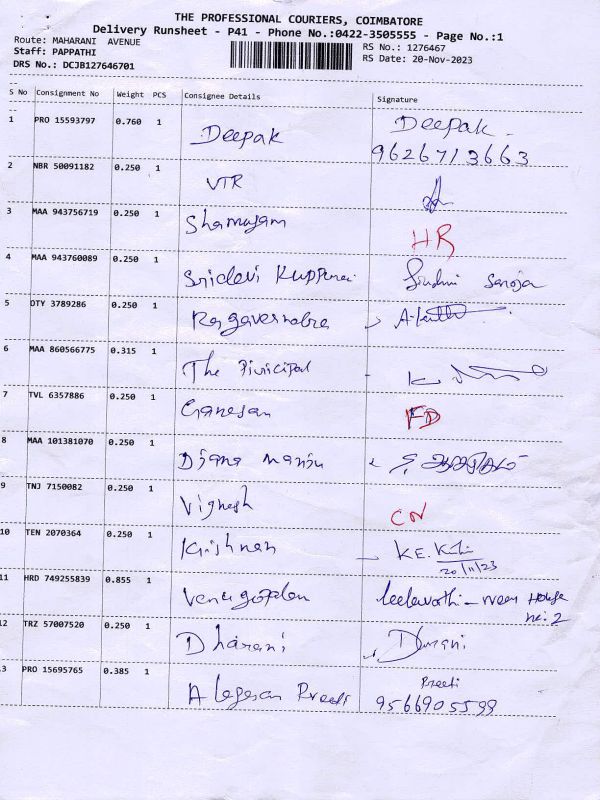 THE PROFESSIONAL COURIERS, COIMBATORE
Delivery Runsheet - P41 - Phone No.:0422-3505555 - Page No.:1
Route: MAHARANI AVENUE
RS No.: 1276467
Staff: PAPPATHI
RS Date: 20-Nov-2023
DRS No.: DCJB127646701
S No Consignment No Weight PCS Consignee Details Signature
1 PRO 15593797 0.760 1 Deepak Deepak
9626713663
2 NBR 50091182 0.250 1 VTR
3 MAA 943756719 0.250 1 HR
4 MAA 943760089 0.250 1 Sridevi Saroja
5 DTY 3789286 0.250 1
6 MAA 860566775 0.315 1 The
7 TVL 6357886 0.250 1 Ganesan FD
8 MAA 101381070 0.250 1
9 TNJ 7150082 0.250 1 Vignesh CN
10 TEN 2070364 0.250 1 Krishnan K.E.
20/11/23
11 HRD 749255839 0.855 1 Venugopalan House
no: 2
12 TRZ 57007520 0.250 1 Dharani
3 PRO 15695765 0.385 1 Preeti Preeti
9566905599